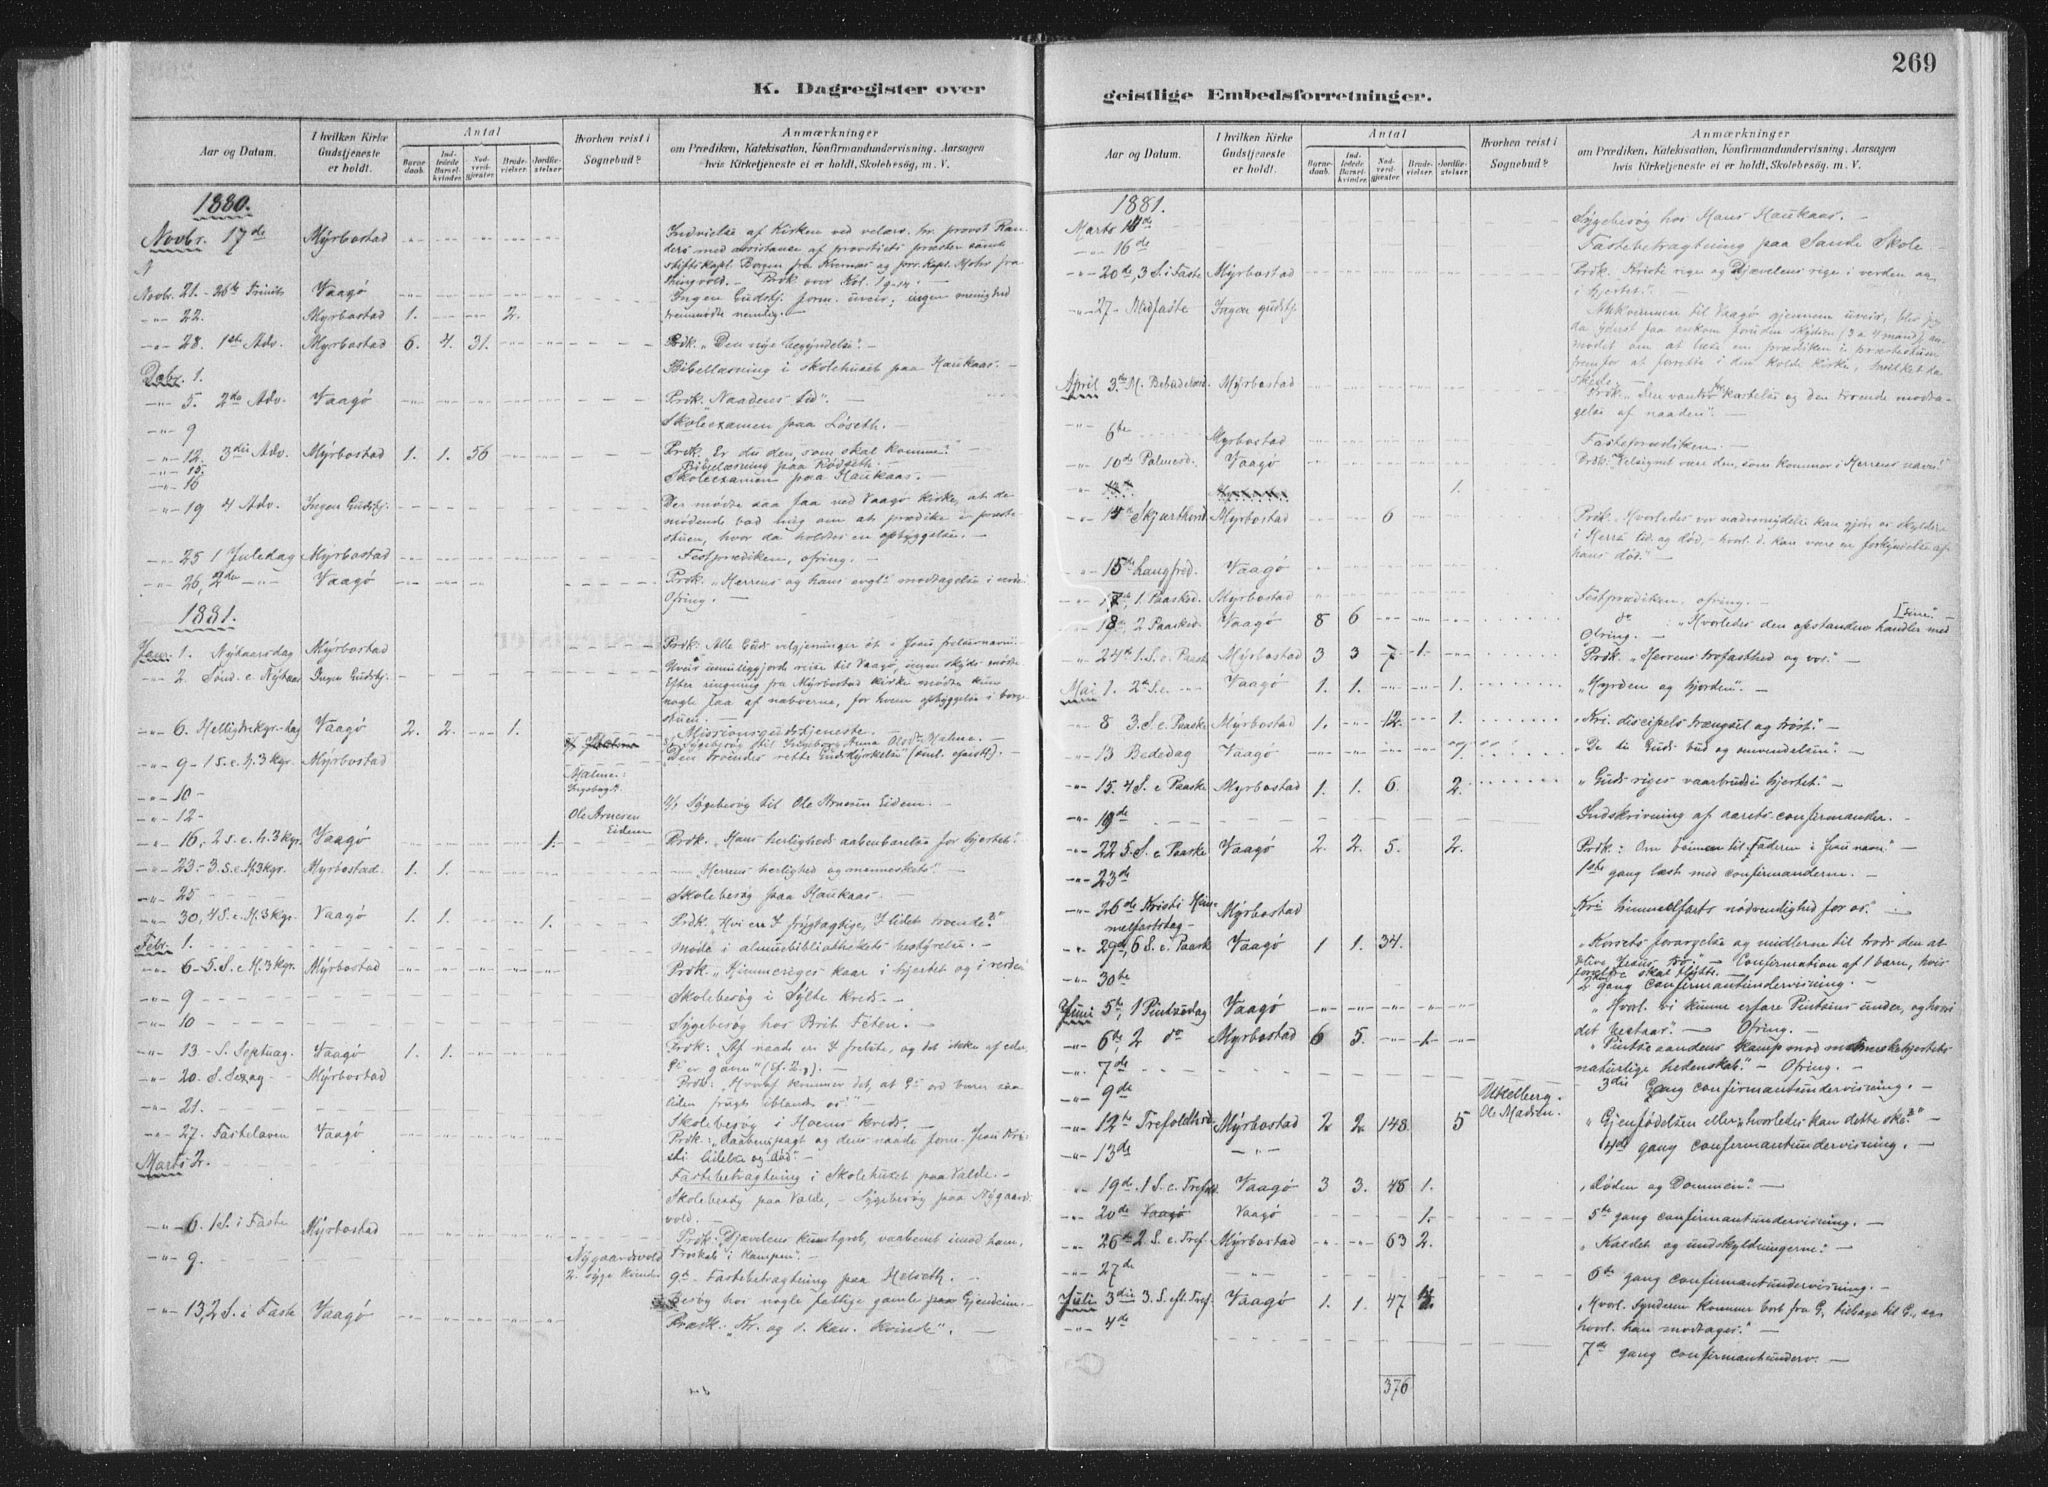 269
K. Dagregister over
Aar og Datum.
I hvilken Kirke
Gudstjeneste
er holdt.
Antal
Barne-
daab.
Ind-
ledede
Barsel-
kvinder.
Nad-
verd-
gjæster.
Brude-
vielser.
Jordfæ-
stelser.
Hvorhen reist i
Sognebud?
Anmærkninger
om Prædiken, Katekisation, Konfirmandundervisning. Aarsagen
hvis Kirketjeneste ei er holdt, Skolebesög, m. V.
1880.
Novbr. 17de Myrbostad Indvielse af Kirken ved
ders med assistance af provstiets præster samt
stiftskapl. Borgen fra Kvernæs og Kapl. Mohr fra
Thingvold. Prdk over Kol. 1 9-14.
Novbr. 21 - 26de Trinit. Vaagö Ingen Gudstj. form. uveir; ingen menighed
-"- 22. Myrbostad 1. 2. fremmödte nemlig.
-"- 28. 1ste Adv. Myrbostad 6. 4. 31. Prdk. "Den nye begyndelse".
Decbr. 1. Bibellæsning i skolehuset paa Haukaas.
-"- 5. 2den Adv. Vaagö Prdk. "Naadens tid".
-"- 9 Skoleexamen paa Löseth.
-"- 12. 3die Adv. Myrbostad 1. 1. 56 Prdk. Er du den, som skal komme?
-"- 15. Bibellæsning paa Rödseth.
-"- 16 Skoleexamen paa Haukaas.
-"- 19 4 Adv. Ingen Gudstj. Der mödte saa faa ved Vaagö kirke, at de
mödende bad mig om at prædike i præste-
stuen, hvor da holdtes en opbyggelse.
-"- 25 1 Juledag Myrbostad Festprædiken, ofring.
-"- 26, 2den -"- Vaagö Prdk. "Herrens og hans evgl. modtagelse i verden
Ofring.
1881.
Jan. 1. Nytaarsdag Myrbostad Prdk: Alle Guds velgjerninger öt i Jesu frelsernavn
-"- 2. Sönd. e. Nytaar Ingen Gudstj. Uveir umuliggjorde reise til Vaagö, ingen skyds mödte
Efter ringning fra Myrbostad kirke mödte kun
nogle faa af naboerne, for hvem opbyggelse i borge-
stuen.
-"- 6. Helligtrekgr.-dag Vaagö 2. 2. 1. Missionsgudstjeneste.
-"- 9 - 1 S. e. H. 3 kgr. Myrbostad "Den troendes rette Gudsdyrkelse
-"- 10 - Malme:
-"- 12 - Ole Arnesen
Eidem Sygebesög til Ole Arnesen Eidem.
-"- 16, 2 S. e. H. 3 kgr. Vaagö 1. Prdk. "Hans herligheds aabenbarelse for hjertet".
-"- 23 - 3 S. e. H. 3 kgr. Myrbostad. 1. 1. Herrens herlighed og menneskets".
-"- 25 - Skolebesög paa Haukaas.
-"- 30, 4 S. e. H. 3 kgr. Vaagö 1. 1. 1. Prdk. "Hvi ere I frygtagtige, I lidet troende?"
Febr. 1. Möde i almuebibliothekets bestyrelse.
-"- 6 - 5. S. e. H. 3 kgr. Myrbostad Prdk. "Himmeriges kaar i hjertet og i verden
-"- 9 Skolebesög i Sylte kreds.
-"- 10 Sygebesög hos Brit Feten.
-"- 13 - S. Septuag. Vaagö 1. 1. Prdk: "Af naade ere I frelste, og det ikke af eder,
-"- 20. S. Sexag Myrbostad Prdk: "Hvoraf kommer det, at G's ord bærer saa
-"- 21. liden frugt iblandt os?"
Skolebesög i Hoems kreds.
-"- 27. Fastelaven Vaagö Prdk: "Daabens pagt og dens naade form. Jesu Kri-
sti lidelse og död".
Marts 2. Fastebetragtning i Skolehuset paa Valde.
Skolebesög paa Valde, - Sygebesög paa Nygaards-
vold.
-"- 6. 1 S. i Faste Myrbostad Prdk: "Djævelens kunstgreb, vaabenet imod ham,
-"- 9. Nygaardsvold
2 syge kvinder 9de Fastebetragtning paa Helseth.
Besög hos nogle fattige gamle paa Gjendem.
-"- 13, 2 S. i Faste Vaagö Prædk: "Kr. og d. kan. kvinde".
geistlige Embedsforretninger.
Aar og Datum.
I hvilken Kirke
Gudstjeneste
er holdt.
Antal
Barne-
daab.
Ind-
ledede
Barsel-
kvinder.
Nad-
verd-
gjæster.
Brude-
vielser.
Jordfæ-
stelser.
Hvorhen reist i
Sognebud?
Anmærkninger
om Prædiken, Katekisation, Konfirmandundervisning. Aarsagen
hvis Kirketjeneste ei er holdt, Skolebesög, m. V.
1881.
Marts 11de Sygebesög hos Hans Haukaas.
-"- 16de Fastebetragtning paa Sande Skole
-"- 20de, 3 S. i Faste Myrbostad Prdk. Kristi rige og Djævelens rige i verden og
i hjertet".
-"- 27 - Midfaste Ingen gudstj. Ankommen til Vaagö gjennem uveir, blev jeg
da yderst faa ankom foruden skydsen (3 a 4 mand), an-
modet om at læse en prædiken i præstestuen
fremfor at forrette i den kolde kirke, hvilket da
skede.
April 3die M. Bebudelsesd. Myrbostad Prdk. "Den vantro's kastelse og den troende modta-
gelse af naaden".
-"- 6te Myrbostad Fasteprædiken.
-"- 10de Palmesd. Vaagö Prdk: "Velsignet være den, som kommer i Herrens navn".
1.
-"- 14de Skjærthorsd. Myrbostad 6 Prdk. "Hvorledes vor nadvernydelse kan gjöre os skyldige
i Herrens lid. og död, - hvorl. d. kan være en forkyndelse af
hans död."
-"- 15de Langfred. Vaagö
-"- 17de, 1. Paasked. Myrbostad Festprædiken, ofring.
-"- 18de, 2 Paasked. Vaagö 8 6 do "Hvorledes den opstandne handler med [sine".
Ofring.
-"- 24de 1. S. e. Paaske Myrbostad 3 3 7 1. Prdk. "Herrens trofasthed og vor".
Mai 1. 2den S. e. -"- Vaagö 1. 1. 1. "Hyrden og hjorden".
-"- 8 3. S. e. Paaske Myrbostad 1. 12. 1. "Kri. discipels trængsel og tröst".
-"- 13 Bededag Vaagö "De ti Guds bud og omvendelsen".
-"- 15. 4 S. e Paaske Myrbostad 1. 1. 6. 2. "Guds riges vaarbrud i hjertet".
-"- 19de Indskrivning af aarets confirmander.
-"- 22 5. S. e Paaske Vaagö 2. 2. 5. 2. Prdk: Om bönnen til Faderen i Jesu navn".
-"- 23de 1ste gang læst med confirmanderne.
-"- 26de Kristi Him-
melfartsdag - Myrbostad "Kri himmelfarts nödvendighed for os".
-"- 29de, 6 S. e. Paaske Vaagö 1 1. 34. "Korsets forargelse og midlerne til trods den at
blive Jesus tro." - Confirmation af 1 barn, hvis
forældre skal flytte.
-"- 30te 2den gang confirmantundervisning.
Juni 5te, 1 Pintsedag Vaagö "Hvorl. vi kunne erfare Pintsens under, og hvori
det bestaar." - Ofring.
-"- 6te, 2 do Myrbostad 6 5. 1. "Pintse aandens kamp mod menneskehjertets
-"- 7de naturlige hedenskab." - Ofring.
-"- 9de 3die Gang confirmantundervisning.
-"- 12te Trefoldhed Myrbostad 2 2. 148. 5 Ole Madsen. "Gjenfödelsen eller hvorledes kan dette ske?"
-"- 13de -"- 4de gang confirmantundervisning.
-"- 19de. 1 S. e. Trefold. Vaagö 3 3. 48 1. "Döden og Dommen".
-"- 20de Vaagö Vaagö 1. 5te gang confirmantundervisning.
-"- 26de 2. S. e. Tref. Myrbostad 63 2. "Kaldet og undskyldningerne".
-"- 27de -"- 6te gang confirmantundervisning.
Juli 3die 3. S. eft. Tref. Vaagö 1. 1. 47 "Hvorl. Synderen kommer bort fra G, tilbage til G., og
-"- 4de hvorl. han modtages."
7de gang confirmantunderv.
376